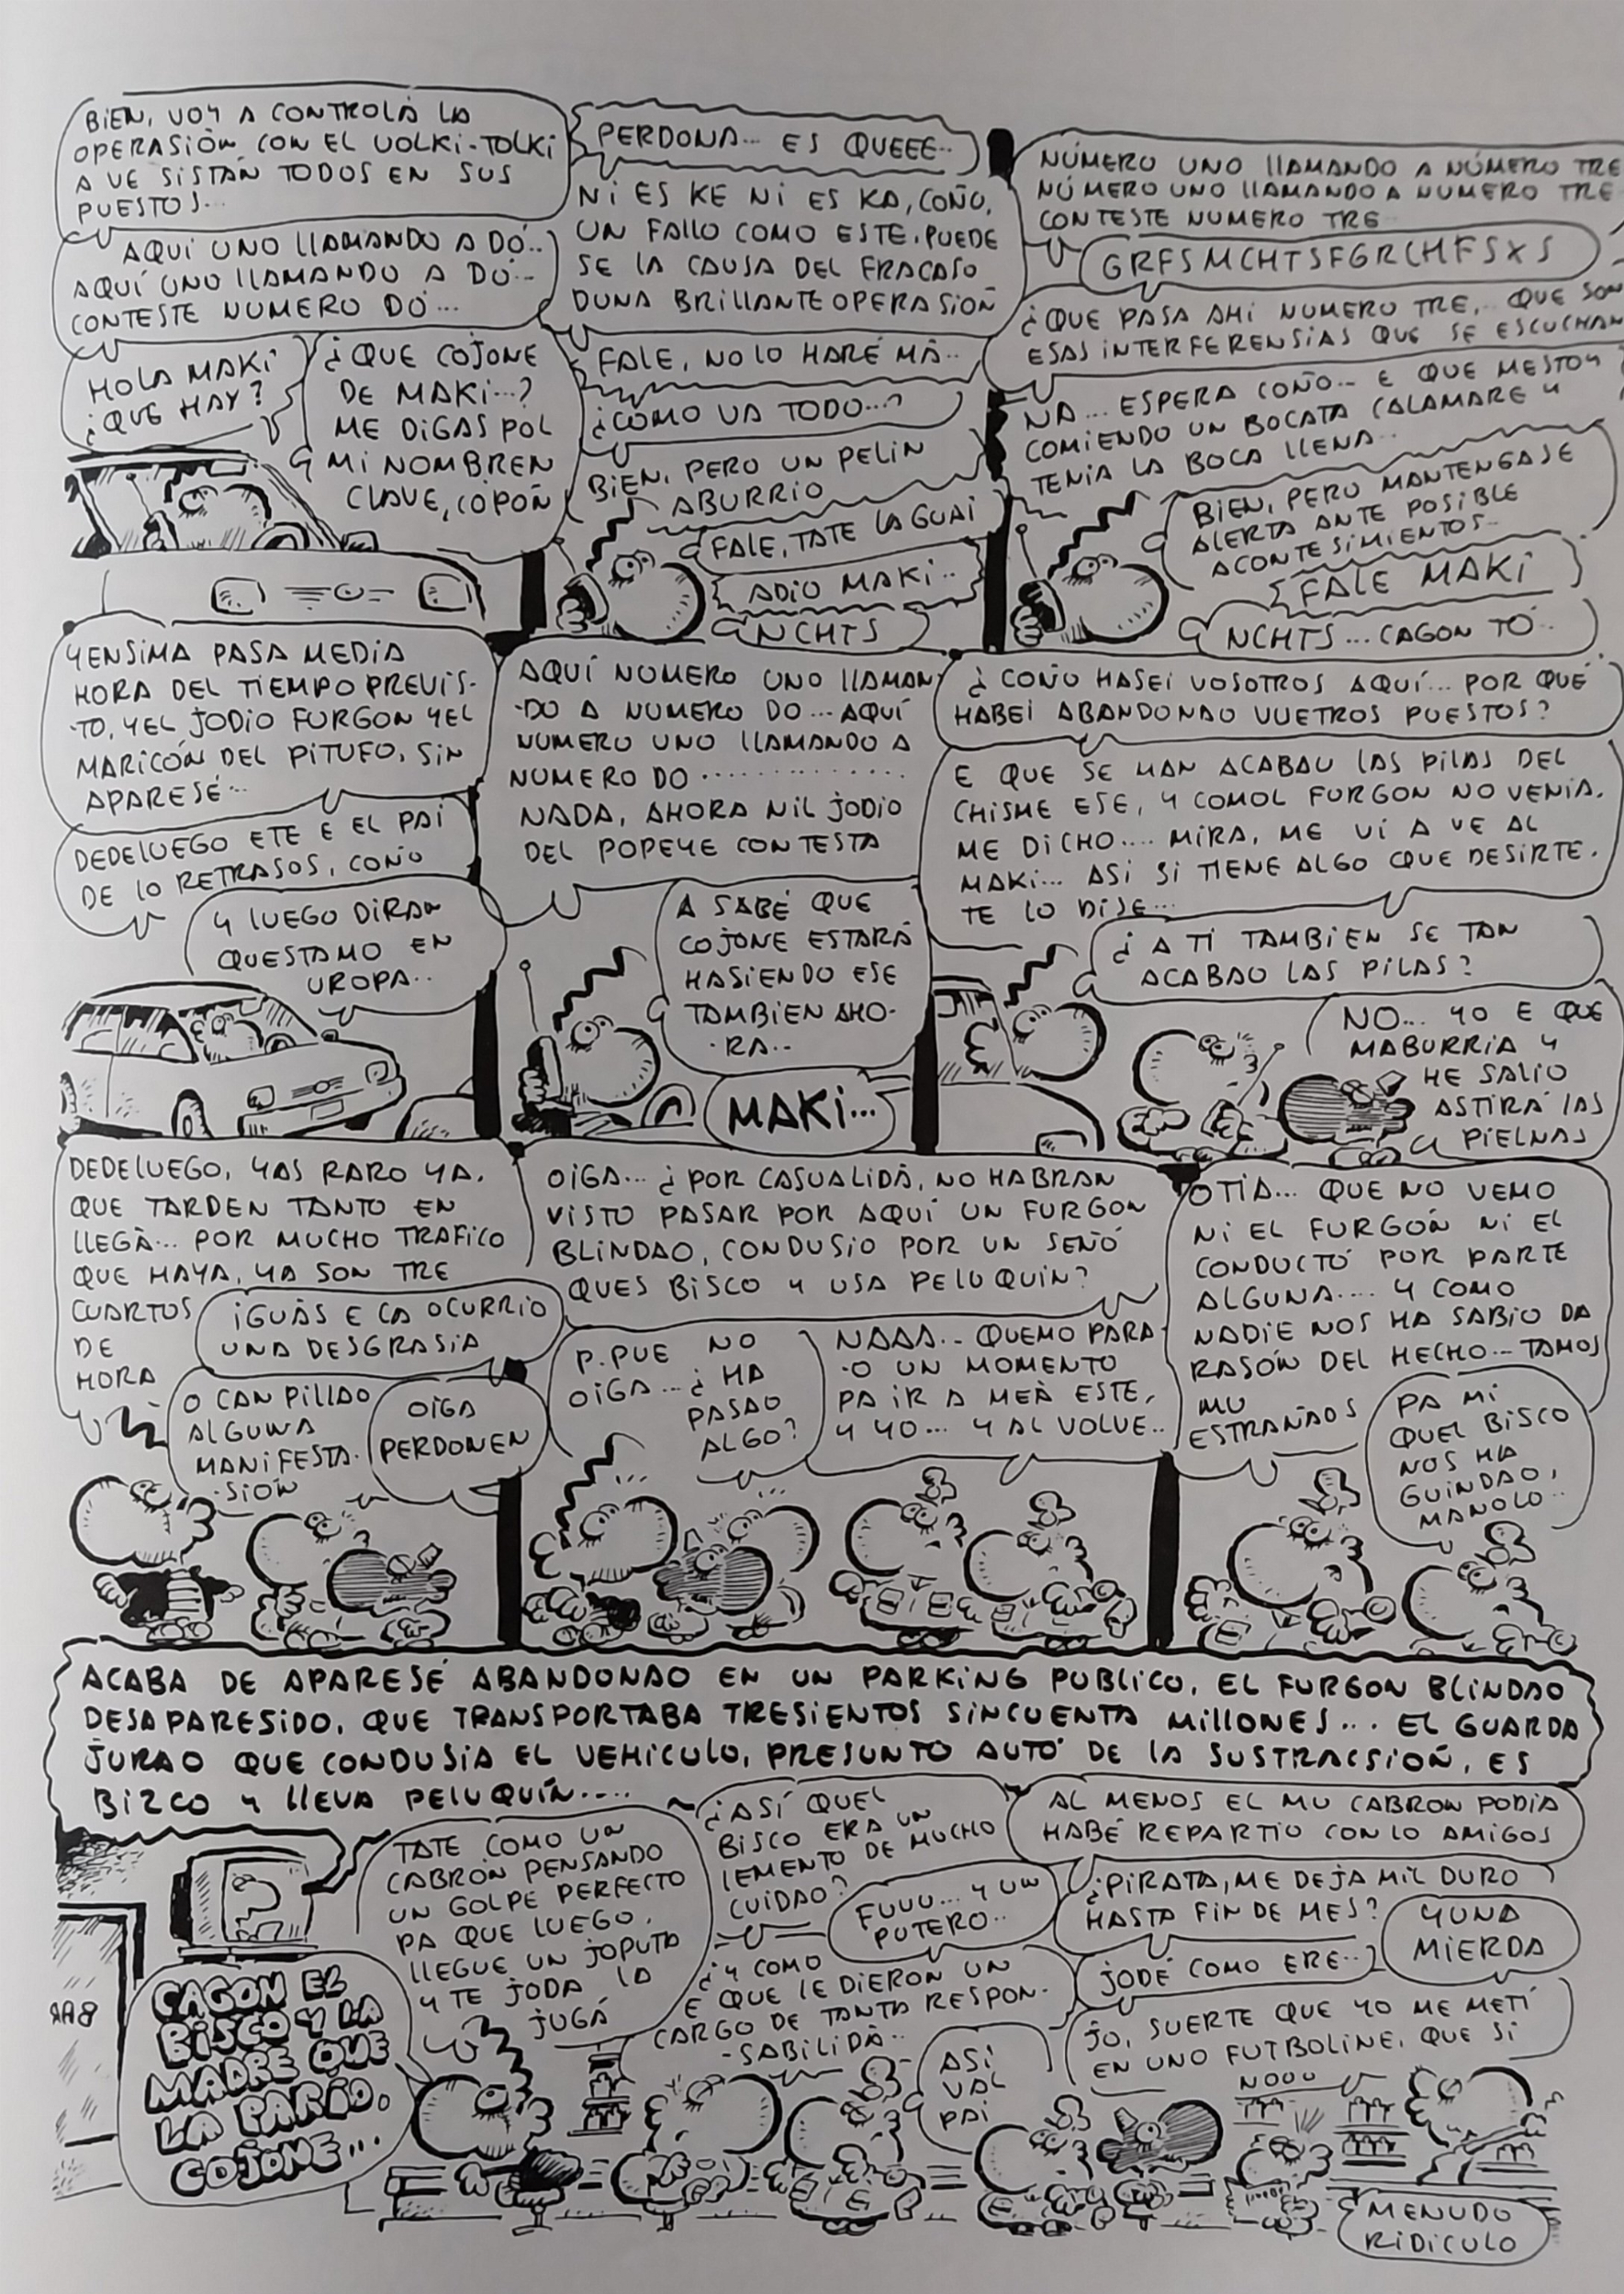 BIEN, VOY A CONTROLÁ LA
OPERASIÓN, CON EL UOLKI-TOLKI
A VE SISTÁN TODOS EN SUS
PUESTOS...
AQUÍ UNO LLAMANDO A DÓ..
AQUÍ UNO LLAMANDO A DÓ...
CONTESTE NUMERO DÓ...
HOLA MAKI
¿QUE HAY?
¿QUE COJONE
DE MAKI...?
ME DIGAS POL
MI NOMBREN
CLAVE, COPÓN
PERDONA... ES QUEEE..
NI ES KE NI ES KA, COÑO,
UN FALLO COMO ESTE, PUEDE
SE LA CAUSA DEL FRACASO
DUNA BRILLANTE OPERASIÓN
FALE, NO LO HARÉ MÁ..
¿CÓMO VA TODO...?
BIEN, PERO UN PELIN
ABURRIO
FALE, TATE LA GUAI
ADIO MAKI..
NCHTS
NÚMERO UNO LLAMANDO A NÚMERO TRE
NÚMERO UNO LLAMANDO A NUMERO TRE
CONTESTE NUMERO TRE
GRFSMCHTSFGRCHFSXS
¿QUE PASA AHI NUMERO TRE, QUE SON
ESAS INTERFERENSIAS QUE SE ESCUCHAN
NA... ESPERA COÑO... E QUE MESTOY
COMIENDO UN BOCATA CALAMARE Y
TENIA LA BOCA LLENA..
BIEN, PERO MANTENGASE
ALERTA ANTE POSIBLE
ACONTESIMIENTOS..
FALE MAKI
NCHTS... CAGON TÓ..
YENSIMA PASA MEDIA
HORA DEL TIEMPO PREVIS-
-TO, YEL JODIO FURGON YEL
MARICÓN DEL PITUFO, SIN
APARESÉ..
DEDELUEGO ETE E EL PAÍ
DE LO RETRASOS, COÑO
Y LUEGO DIRAN
QUESTAMO EN
UROPA..
AQUÍ NUMERO UNO LLAMAN-
-DO A NUMERO DO... AQUÍ
NUMERO UNO LLAMANDO A
NUMERO DO ..............
NADA, AHORA NIL JODIO
DEL POPEYE CONTESTA
A SABÉ QUE
COJONE ESTARÁ
HASIENDO ESE
TAMBIEN AHO-
-RA..
MAKI...
¿COÑO HASEI VOSOTROS AQUÍ... POR QUÉ
HABEI ABANDONAO VUETROS PUESTOS?
E QUE SE HAN ACABAU LAS PILAS DEL
CHISME ESE, Y COMOL FURGON NO VENIA,
ME DICHO.... MIRA, ME VÍ A VE AL
MAKI... ASI SI TIENE ALGO QUE DESIRTE.
TE LO DISE...
¿A TI TAMBIEN SE TAN
ACABAO LAS PILAS?
NO... YO E QUE
MABURRIA Y
HE SALIO
ASTIRÁ LAS
PIELNAS
DEDELUEGO, YAS RARO YA,
QUE TARDEN TANTO EN
LLEGÁ... POR MUCHO TRAFICO
QUE HAYA, YA SON TRE
CUARTOS
DE
HORA
IGUÁS E CA OCURRIO
UNA DESGRASIA
O CAN PILLAO
ALGUNA
MANIFESTA-
-SIÓN
OIGA
PERDONEN
OIGA... ¿POR CASUALIDÁ, NO HABRAN
VISTO PASAR POR AQUÍ UN FURGON
BLINDAO, CONDUSIO POR UN SEÑÓ
QUES BISCO Y USA PELUQUIN?
P.PUE NO
OIGA... ¿HA
PASAO
ALGO?
NAAA... QUEMO PARA-
-O UN MOMENTO
PA IR A MEÁ ESTE,
Y YO... Y AL VOLVE..
OTIA... QUE NO VEMO
NI EL FURGÓN NI EL
CONDUCTÓ POR PARTE
ALGUNA.... Y COMO
NADIE NOS HA SABIO DA
RASÓN DEL HECHO... TAMOS
MU
ESTRAÑAOS
PA MÍ
QUEL BISCO
NOS HA
GUINDAO,
MANOLO..
ACABA DE APARESÉ ABANDONAO EN UN PARKING PUBLICO, EL FURGON BLINDAO
DESAPARESIDO, QUE TRANSPORTABA TRESIENTOS SINCUENTA MILLONES... EL GUARDA
JURAO QUE CONDUSIA EL VEHICULO, PRESUNTO AUTÓ DE LA SUSTRACSIOÑ, ES
BIZCO Y LLEVA PELUQUÍN....
CAGON EL
BISCO Y LA
MADRE QUE
LA PARIO,
COJONE...
BAR
TATE COMO UN
CABRÓN PENSANDO
UN GOLPE PERFECTO
PA QUE LUEGO,
LLEGUE UN JOPUTA
Y TE JODA LA
JUGÁ
¿ASÍ QUEL
BISCO ERA UN
LEMENTO DE MUCHO
CUIDAO?
FUUU... Y UN
PUTERO..
¿Y COMO
E QUE LE DIERON UN
CARGO DE TANTA RESPON-
-SABILIDÁ..
ASÍ
VAL
PAÍ
AL MENOS EL MU CABRON PODIA
HABÉ REPARTIO CON LO AMIGOS
¿PIRATA, ME DEJA MIL DURO
HASTA FIN DE MES?
Y UNA
MIERDA
JODÉ COMO ERE..
JO, SUERTE QUE YO ME METÍ
EN UNO FUTBOLINE, QUE SI
NOOO
MENUDO
RIDICULO